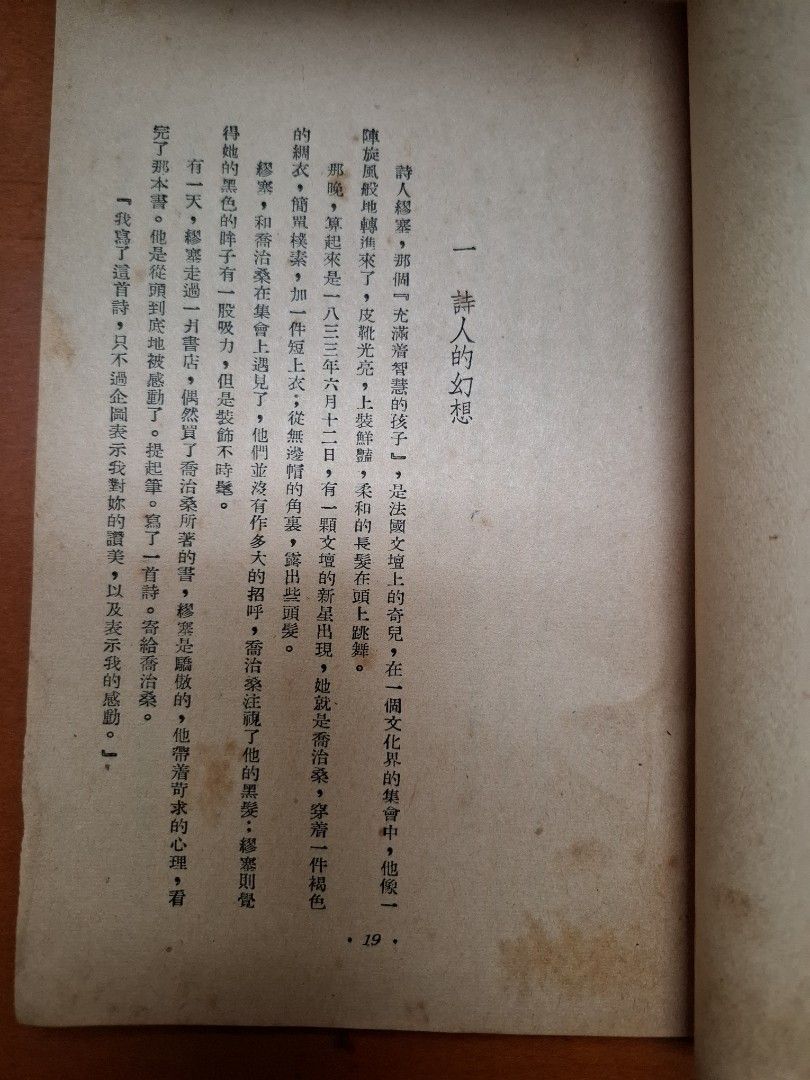 一　詩人的幻想
詩人繆塞，那個『充滿着智慧的孩子』，是法國文壇上的奇兒，在一個文化界的集會中，他像一
陣旋風般地轉進來了，皮靴光亮，上裝鮮豔，柔和的長髮在頭上跳舞。
那晚，算起來是一八三三年六月十二日，有一顆文壇的新星出現，她就是喬治桑，穿着一件褐色
的綢衣，簡單樸素，加一件短上衣；從無邊帽的角裏，露出些頭髮。
繆塞，和喬治桑在集會上遇見了，他們並沒有作多大的招呼，喬治桑注視了他的黑髮；繆塞則覺
得她的黑色的眸子有一股吸力，但是裝飾不時髦。
有一天，繆塞走過一爿書店，偶然買了喬治桑所著的書，繆塞是驕傲的，他帶着苛求的心理，看
完了那本書。他是從頭到底地被感動了。提起筆。寫了一首詩。寄給喬治桑。
『我寫了這首詩，只不過企圖表示我對妳的讚美，以及表示我的感動。』
•19•